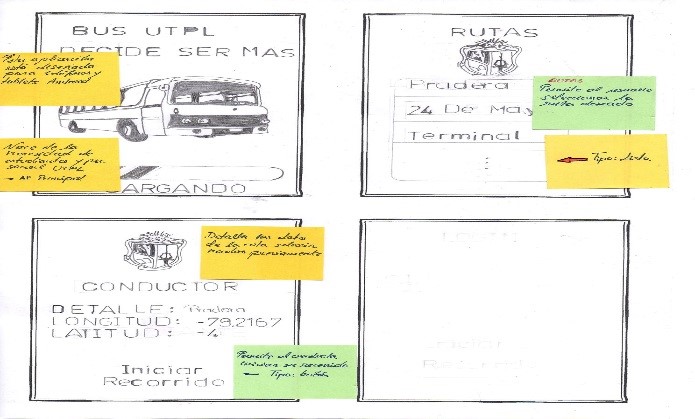 BUS UTPL
DECIDE SER MAS
Esta aplicación
está diseñada
para teléfonos y
tablets Android
Nace de la
necesidad de
estudiantes y per
sonal UTPL
CARGANDO
RUTAS
Pradera
24 De May
Terminal
RUTAS
Permite al usuario
seleccionar la
ruta deseada
Tipo: lista
Detalla los datos
de la ruta selecci
previamente
CONDUCTOR
DETALLE: Pradera
LONGITUD: -79.2167
LATITUD: -4
Iniciar
Recorrido
Permite al conductor
iniciar su recorrido
Tipo: botón